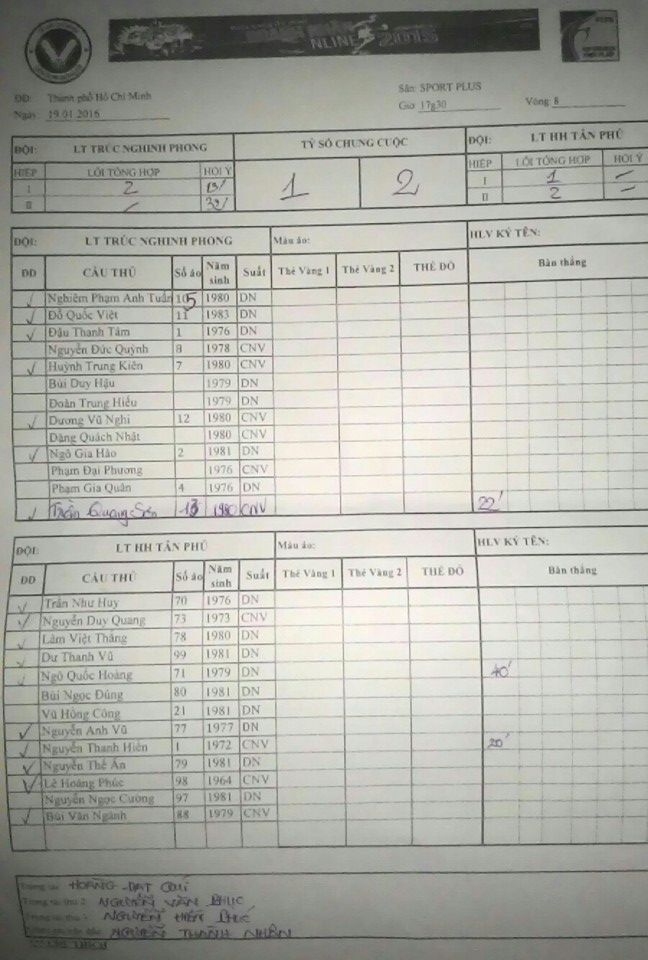 NLINE 2015
ĐĐ: Thành phố Hồ Chí Minh
Sân: SPORT PLUS
Ngày: 19.01 2016
Giờ 17g30
Vòng: 8
ĐỘI: LT TRÚC NGHINH PHONG
TỶ SỐ CHUNG CUỘC
ĐỘI: LT HH TÂN PHÚ
HIỆP LỖI TỔNG HỢP HỘI Ý
1 2
HIỆP LỖI TỔNG HỢP HỘI Ý
I 2 13/
I 1 –
II – 32/
II 2 –
ĐỘI: LT TRÚC NGHINH PHONG Màu áo: HLV KÝ TÊN:
ĐD CẦU THỦ Số áo Năm sinh Suất Thẻ Vàng 1 Thẻ Vàng 2 THẺ ĐỎ Bàn thắng
✓ Nghiêm Phạm Anh Tuấn 105 1980 DN
✓ Đỗ Quốc Việt 11 1983 DN
✓ Đậu Thanh Tâm 1 1976 DN
Nguyễn Đức Quỳnh 8 1978 CNV
✓ Huỳnh Trung Kiên 7 1980 CNV
Bùi Duy Hậu 1979 DN
Đoàn Trung Hiếu 1979 DN
✓ Dương Vũ Nghi 12 1980 CNV
Dăng Quách Nhật 1980 CNV
✓ Ngô Gia Hào 2 1981 DN
Phạm Đại Phương 1976 CNV
Phạm Gia Quân 4 1976 DN
✓ Trần Quang 13 1980 CNV 22'
ĐỘI: LT HH TÂN PHÚ Màu áo: HLV KÝ TÊN:
ĐD CẦU THỦ Số áo Năm sinh Suất Thẻ Vàng 1 Thẻ Vàng 2 THẺ ĐỎ Bàn thắng
✓ Trần Như Huy 70 1976 DN
✓ Nguyễn Duy Quang 73 1973 CNV
✓ Lâm Việt Thắng 78 1980 DN
✓ Dư Thanh Vũ 99 1981 DN
✓ Ngô Quốc Hoàng 71 1979 DN 40'
Bùi Ngọc Dũng 80 1981 DN
Vũ Hồng Công 21 1981 DN
✓ Nguyễn Anh Vũ 77 1977 DN
✓ Nguyễn Thanh Hiền 1 1972 CNV 20'
✓ Nguyễn Thế Ân 79 1981 DN
✓ Lê Hoàng Phúc 98 1964 CNV
Nguyễn Ngọc Cường 97 1981 DN
✓ Bùi Văn Ngành 88 1979 CNV
Trọng tài: HOÀNG ĐẠT
Trọng tài thứ 2: NGUYỄN VĂN PHỤC
Trọng tài thứ 3: NGUYỄN HIỀN
NGUYỄN THÀNH NHÂN